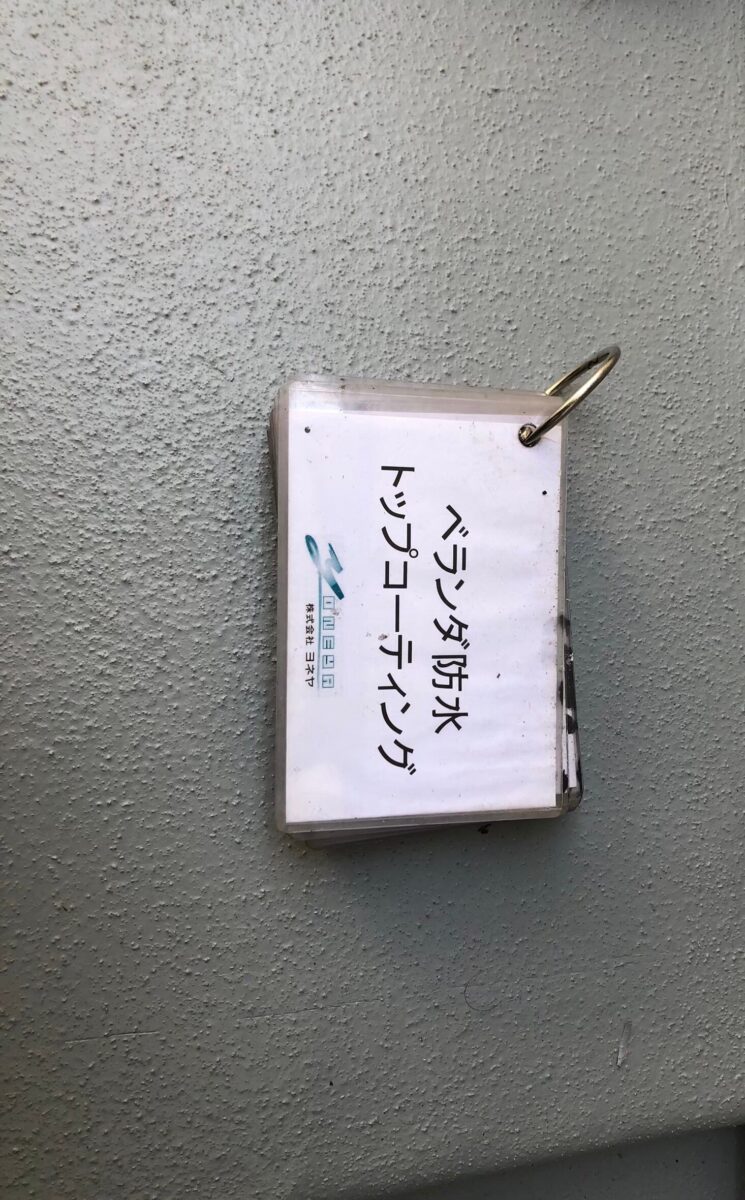 ベランダ防水
トップコーティング
YONEYA
株式会社 ヨネヤ